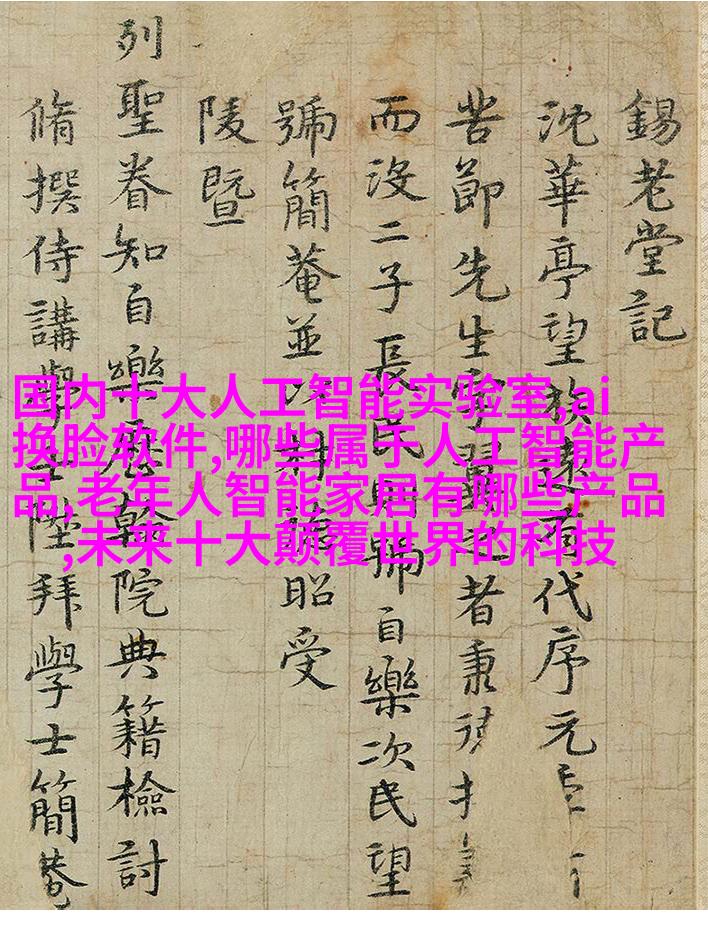 錫老堂記
沈華亭望族代序元
苦節先生者秉
而沒二子長民則號自樂次民望
號簡菴並以昭受
陵暨
列聖眷知自樂歷翰院典籍檢討
脩撰侍講學士陞拜學士簡菴
国内十大人工智能实验室,ai
换脸软件,哪些属于人工智能产
品,老年人智能家居有哪些产品
,未来十大颠覆世界的科技